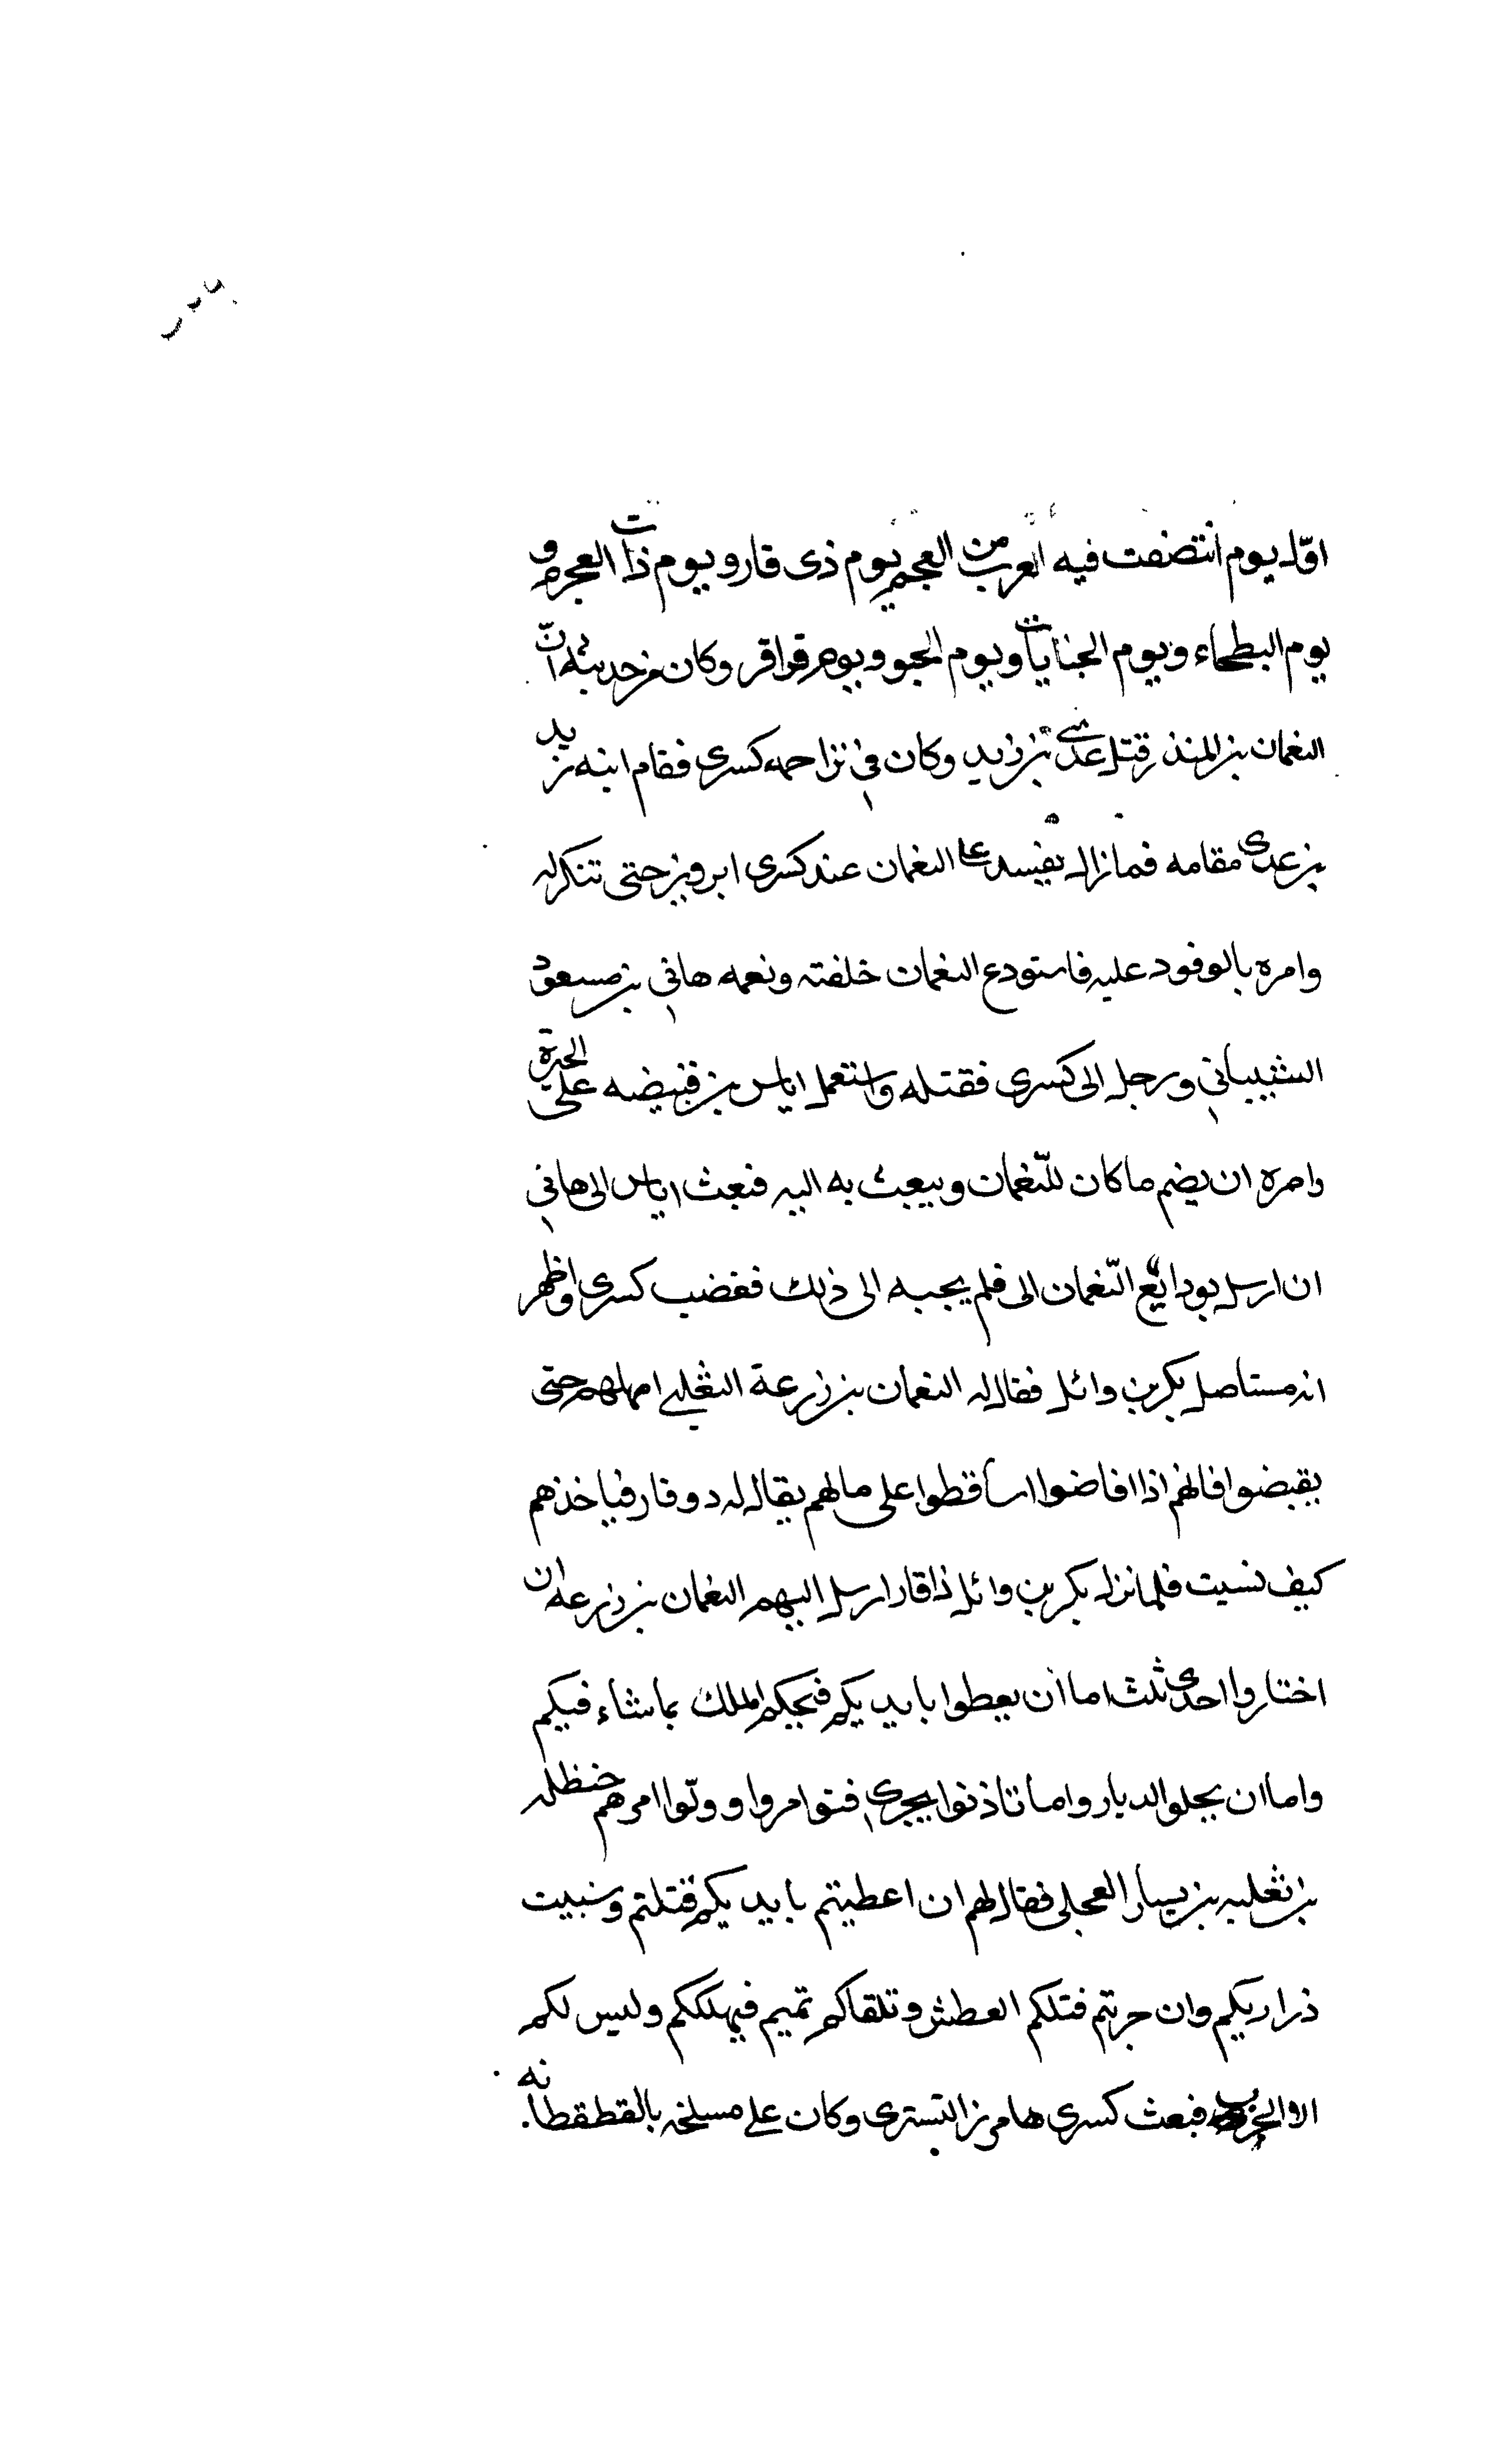 اوّل يوم انتصفت فيه العرب من العجم يوم ذى قار و يوم ذات العجرم و
يوم البطحاء ويوم الجنايات ويوم الجو ويوم قراقر وكان من حديثه انّ
النعمان بن المنذر قتل عدى بن زيد وكان فى تزاحمه كسرى فقام ابنه زيد
بن عدى مقامه فما زال يفسد على النعمان عند كسرى ابرويز حتى تنكر له
وامره بالوفود عليه فاستودع النعمان خلفته ونعمه هانى بن مسعود
الشيبانى ورحل الى كسرى فقتله واستعمل اياس بن قبيضه على الحيرة
وامره ان يضم ما كان للنّعمان ويبعث به اليه فبعث اياس الى هانى
ان ارسل بودائع النّعمان الى فلم يجبه الى ذلك فغضب كسرى واظهر
انه مستاصل بكر بن وائل فقال له النعمان بن زرعة التغلبى امهلهم حتى
يقيضوا فانهم اذا افاضوا اساقطوا على ما لهم يقال له ذو قار فياخذهم
كيف نسيت فلما نزل بكر بن وائل ذا قار ارسل اليهم النعمان بن زرعه ان
اختاروا احدى ثلث اما ان يعطوا بايديكم فيحكم الملك بما شاء فيكم
واما ان يجلوا الديار واما تاذنوا بحرى فتوامروا وولّوا امرهم حنظله
بن ثعلبه بن يسار العجلى فقال لهم ان اعطيتم بايديكم قتلتم وسبيت
ذراريكم وان جريتم قتلكم العطش وتلقاكم تميم فيهلككم وليس لكم
الا الحرب فبعث كسرى هامرز التسترى وكان على مسلخه بالقطقطانه